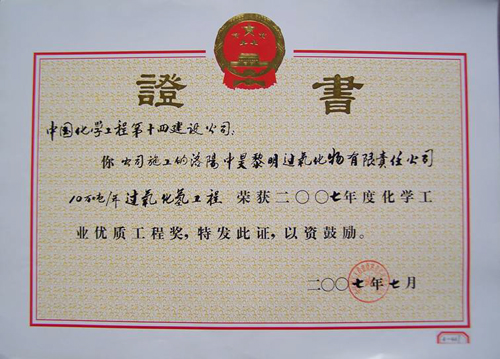 證書
中国化学工程第十四建设公司:
你公司施工的洛陽中昊黎明过氧化物有限责任公司
10万吨/年过氧化氢工程 荣获二〇〇七年度化学工
业优质工程奖,特发此证,以资鼓励。
二〇〇七年七月